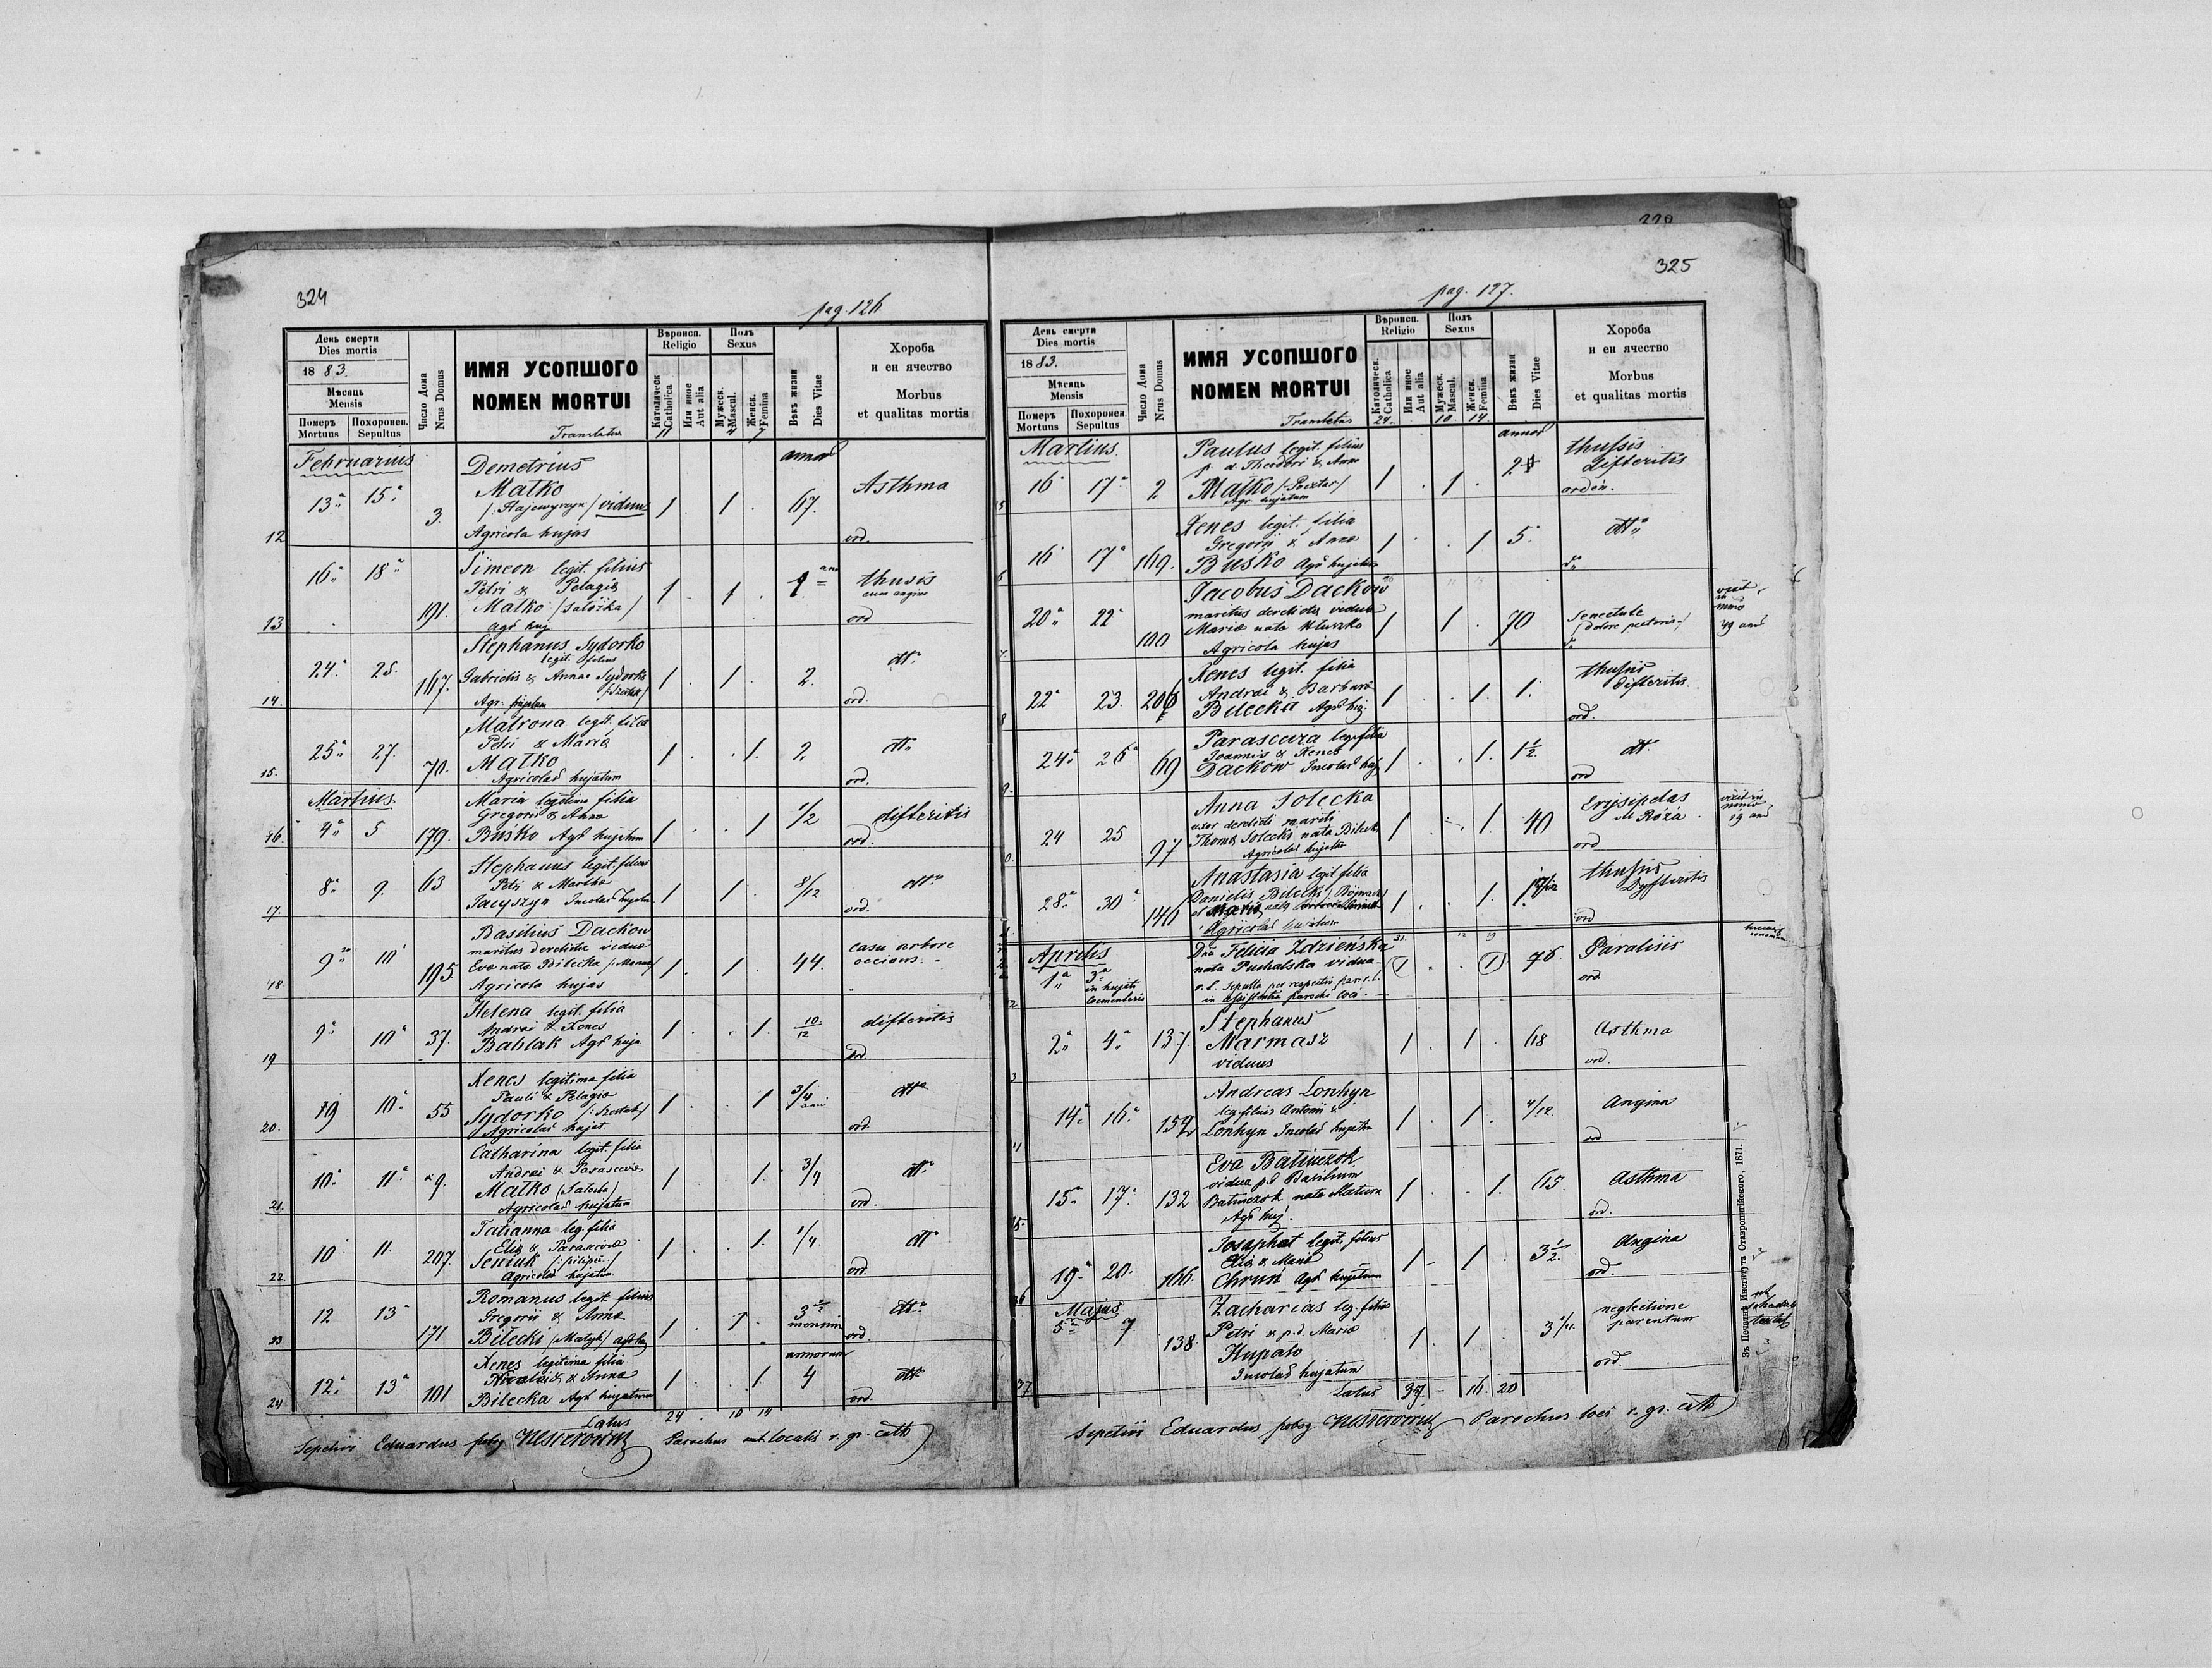 324
pag. 126.
День смерти
Dies mortis
1883.
Мѣсяць
Mensis
Померъ
Mortuus
Похоронен.
Sepultus
Число Дома
Nrus Domus
ИМЯ УСОПШОГО
NOMEN MORTUI
Translatus
Вѣроисп.
Religio
Католическ.
Catholica
Или иное
Aut alia
Полъ
Sexus
Мужеск.
Mascul.
Женск.
Femina
Вѣкъ жизни
Dies Vitae
Хороба
и еи ячество
Morbus
et qualitas mortis
11 4 7
Februarius
12 13ª 15ª 3. Demetrius
Matko
viduus
Agricola hujas
1 . 1 . annor 67. Asthma
ord.
13 16ª 18ª 191. Simeon legit. filius
Petri & Pelagiæ
Matko
Agr huj
1 . 1 . 1 ann thusis
cum angina
ord
14. 24ª 25. 167. Stephanus Sydorko
legit. filius
Gabrielis & Annae Sydorko
Agr. hujatum
1 . 1 . 2. dtt°
ord.
15. 25ª 27. 70. Matrona legit. filia
Petri & Mariæ
Matko
Agricolar hujatum
1 . . 1. 2. dtt°
ord.
Martius.
16. 4ª 5 179. Maria legitima filia
Gregorii & Anna
Busko Agr hujatum
1 . . 1 1/2 difteritis
ord.
17. 8ª 9. 63 Stephanus legit. filius
Petri & Martha
Jacyszyn Incolar hujatum
1 . 1 . 8/12 dtt°
ord.
18. 9 10 195 Basilius Dackow
maritus derelictæ viduæ
Eva nata Bilecka
Agricola hujas
1. . 1 . 44. casu arbore
occisus.
19. 9ª 10ª 37. Helena legit. filia
Andrei & Xenes
Bablak Agr huja
1 . . 1. 10/12 difteritis
ord
20. 19 10ª 55 Xenes legitima filia
Pauli & Pelagia
Sydorko
Agricolar hujat.
1 . . 1 3/4 anni dtt°
ord.
21. 10ª 11ª 9. Catharina legit. filia
Andrei & Parascevies
Matko
Agricolar hujatum
1 . . 1. 3/4 dtt°
ord.
22. 10 11. 207. Tatianna leg. filia
Eliæ & Parascevia
Seniuk
Agricolar hujatum
1 . . 1. 1/4. dtt°
ord.
23 12 13ª 171 Romanus legit. filius
Gregorii & Anna
Bilecki
1 . 1 . 3 mensium dtt°
ord.
24 12ª 13ª 101 Xenes legitima filia
Nicolai & Anna
Bilecka Agr hujatum
1 . . 1 annorum 4 dtt°
ord.
Latus 24 . 10 14
Sepelivi Eduardus Nesterowicz Parochus localis r. gr. cath
325
pag. 127.
День смерти
Dies mortis
1883.
Мѣсяць
Mensis
Померъ
Mortuus
Похоронен.
Sepultus
Число Дома
Nrus Domus
ИМЯ УСОПШОГО
NOMEN MORTUI
Translatus
Вѣроисп.
Religio
Католическ.
Catholica
Или иное
Aut alia
Полъ
Sexus
Мужеск.
Mascul.
Женск.
Femina
Вѣкъ жизни
Dies Vitae
Хороба
и еи ячество
Morbus
et qualitas mortis
24. . 10. 14.
Martius.
16 17ª 2 Paulus legit. filius
p. d. Theodori & Anna
Matko
Agr. hujatum
1 . 1 . annor 2 thussis
difteritis
ordin.
16 17ª 169. Xenes legit. filia
Gregorii & Anna
Busko Agr hujatum
1 . . 1 5. dtt°
20ª 22ª 100 Jacobus Dackow
maritus derelictæ viduæ
Maria nata
Agricola hujas
1 . 1 . 70 Senectute
(dolore pectoris)
22ª 23. 206 Xenes legit. filia
Andrei & Barbara
Bilecka Agr huj.
1 . . 1. 1. thussis
difteritis.
ord.
24ª 26ª 69 Parasceva leg. filia
Joannis & Xenes
Dackow Incolar huj
1 . . 1. 1 1/2 dtt°
ord
24 25 97 Anna Solecka
uxor derelicti mariti
Thoma Solecki nata Bilecka
Agricolar hujatum
1 . . 1. 40 Erysipelas
Róża
ord
28ª 30ª 140 Anastasia legit filia
Danielis Bilecki
Agricolar hujatum
1 . . 1. thussis
Dyfteritis
ord
Aprilis
1ª 3ª
in hujati
coementerio
Dna Felicia Zdzieńska
nata Puchalska vidua
r. l. sepulta per respectiv. par. r. l.
in assistentia parochi loci.
1 . . 1 76 Paralisis
ord.
2ª 4ª 137 Stephanus
Marmasz
viduus
1 . 1 . 68 Asthma
ord.
14ª 16ª 152 Andreas Lonhyn
leg. filius Antonii &
Lonhyn Incolar hujatum
1 . 1 . 4/12. Angina
ord
15ª 17ª 132 Eva Batiuczok
vidua p. d Basilium
Batiuczok nata
Agr huj.
1 . . 1. 65. Asthma
ord.
19ª 20. 166. Josaphat legit. filius
Eliæ & Maria
Chruń Agr hujatum
1 - 1 . 3 1/2. Angina
ord.
Majus
37 5ª 7. 138 Zacharias leg. filius
Petri & p. d. Mariæ
Hupalo
Incolar hujatum
1 . 1 . 3 1/4. neglectione
parentum
ord.
Latus 37. - 16. 20
Sepelivi Eduardus Nesterowicz Parochus loci r. gr. cath
Зъ Печатнѣ Института Ставропигійского, 1871.